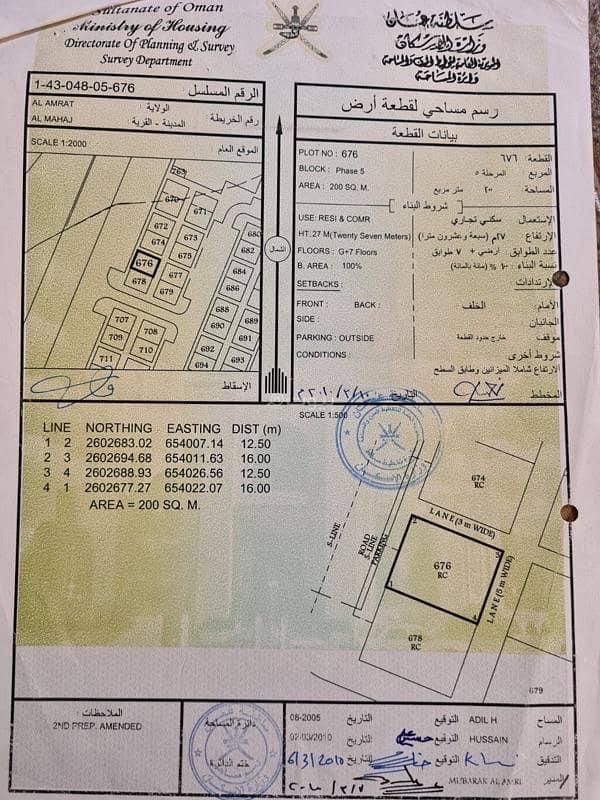 Sultanate of Oman
Ministry of Housing
Directorate Of Planning & Survey
Survey Department
سلطنة عمان
وزارة الإسكان
دائرة المساحة
1-43-048-05-676 الرقم المسلسل
AL AMRAT الولاية
رقم الخريطة
AL MAHAJ المدينة - القرية
SCALE 1:2000 الموقع العام
763
670
671
672
674
673
675
676
677
678
679
680
682
686
688
690
689
692
691
694
693
707
708
709
710
711
712
الشمال
الإسقاط
رسم مساحي لقطعة أرض
بيانات القطعة
PLOT NO : 676 القطعة : ٦٧٦
BLOCK : Phase 5 المربع المرحلة ٥
AREA : 200 SQ. M. المساحة ٢٠٠ متر مربع
شروط البناء
USE: RESI & COMR الإستعمال سكني تجاري
HT. 27 M(Twenty Seven Meters) الإرتفاع ٢٧م (سبعة وعشرون مترا)
FLOORS : G+7 Floors عدد الطوابق أرضي + ٧ طوابق
B. AREA : 100% نسبة البناء ١٠٠ % (مائة بالمائة)
SETBACKS: الإرتدادات
FRONT : BACK : الخلف الأمام
SIDE : الجانبان
PARKING : OUTSIDE موقف خارج حدود القطعة
CONDITIONS : شروط أخرى
الارتفاع شاملا الميزانين وطابق السطح
المخطط التاريخ
SCALE 1:500
LINE NORTHING EASTING DIST (m)
1 2 2602683.02 654007.14 12.50
2 3 2602694.68 654011.63 16.00
3 4 2602688.93 654026.56 12.50
4 1 2602677.27 654022.07 16.00
AREA = 200 SQ. M.
S-LINE
ROAD
S-LINE
PARKING
674
RC
LANE (3 m WIDE)
2
676
RC
1
4
LANE (5 m WIDE)
678
RC
679
الملاحظات:
2ND PREP. AMENDED
دائرة المساحة
ختم الدائرة
08-2005 التاريخ التوقيع ADIL H المساح
02/03/2010 التاريخ التوقيع HUSSAIN الرسام
6/3/2010 التاريخ التوقيع التدقيق
MUBARAK AL AMRI المدير